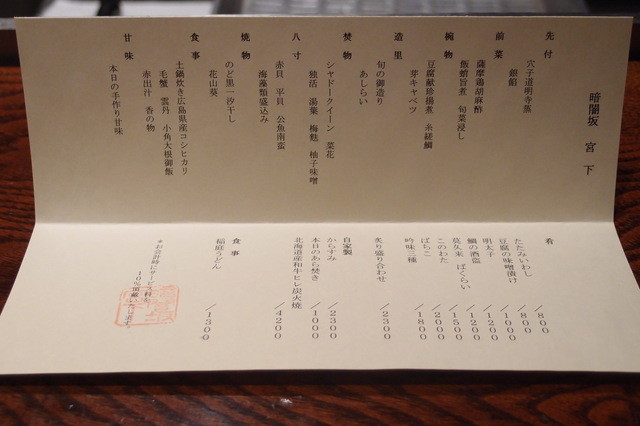 暗闇坂 宮下
先付
穴子道明寺蒸
銀餡
前菜
薩摩鶏胡麻酢
飯蛸旨煮 旬菜浸し
椀物
豆腐献珍揚煮 糸縒鯛
芽キャベツ
造里
旬の御造り
あしらい
焚物
シャドークイーン 菜花
独活 湯葉 梅麩 柚子味噌
八寸
赤貝 平貝 公魚南蛮
海藻類盛込み
焼物
のど黒一汐干し
花山葵
食事
土鍋炊き広島県産コシヒカリ
毛蟹 雲丹 小角大根御飯
赤出汁 香の物
甘味
本日の手作り甘味
肴
たたみいわし /800
豆腐の味噌漬け /800
明太子 /1000
鯛の酒盗 /1200
莫久来 ばくらい /1200
このわた /1500
ばちこ /2000
吟味三種 /1800
炙り盛り合わせ /2300
自家製
からすみ /2300
本日のあら焚き /1000
北海道産和牛ヒレ炭火焼 /4200
食事
稲庭うどん /1300
*お会計時にサービス料金
10%頂戴いたします。